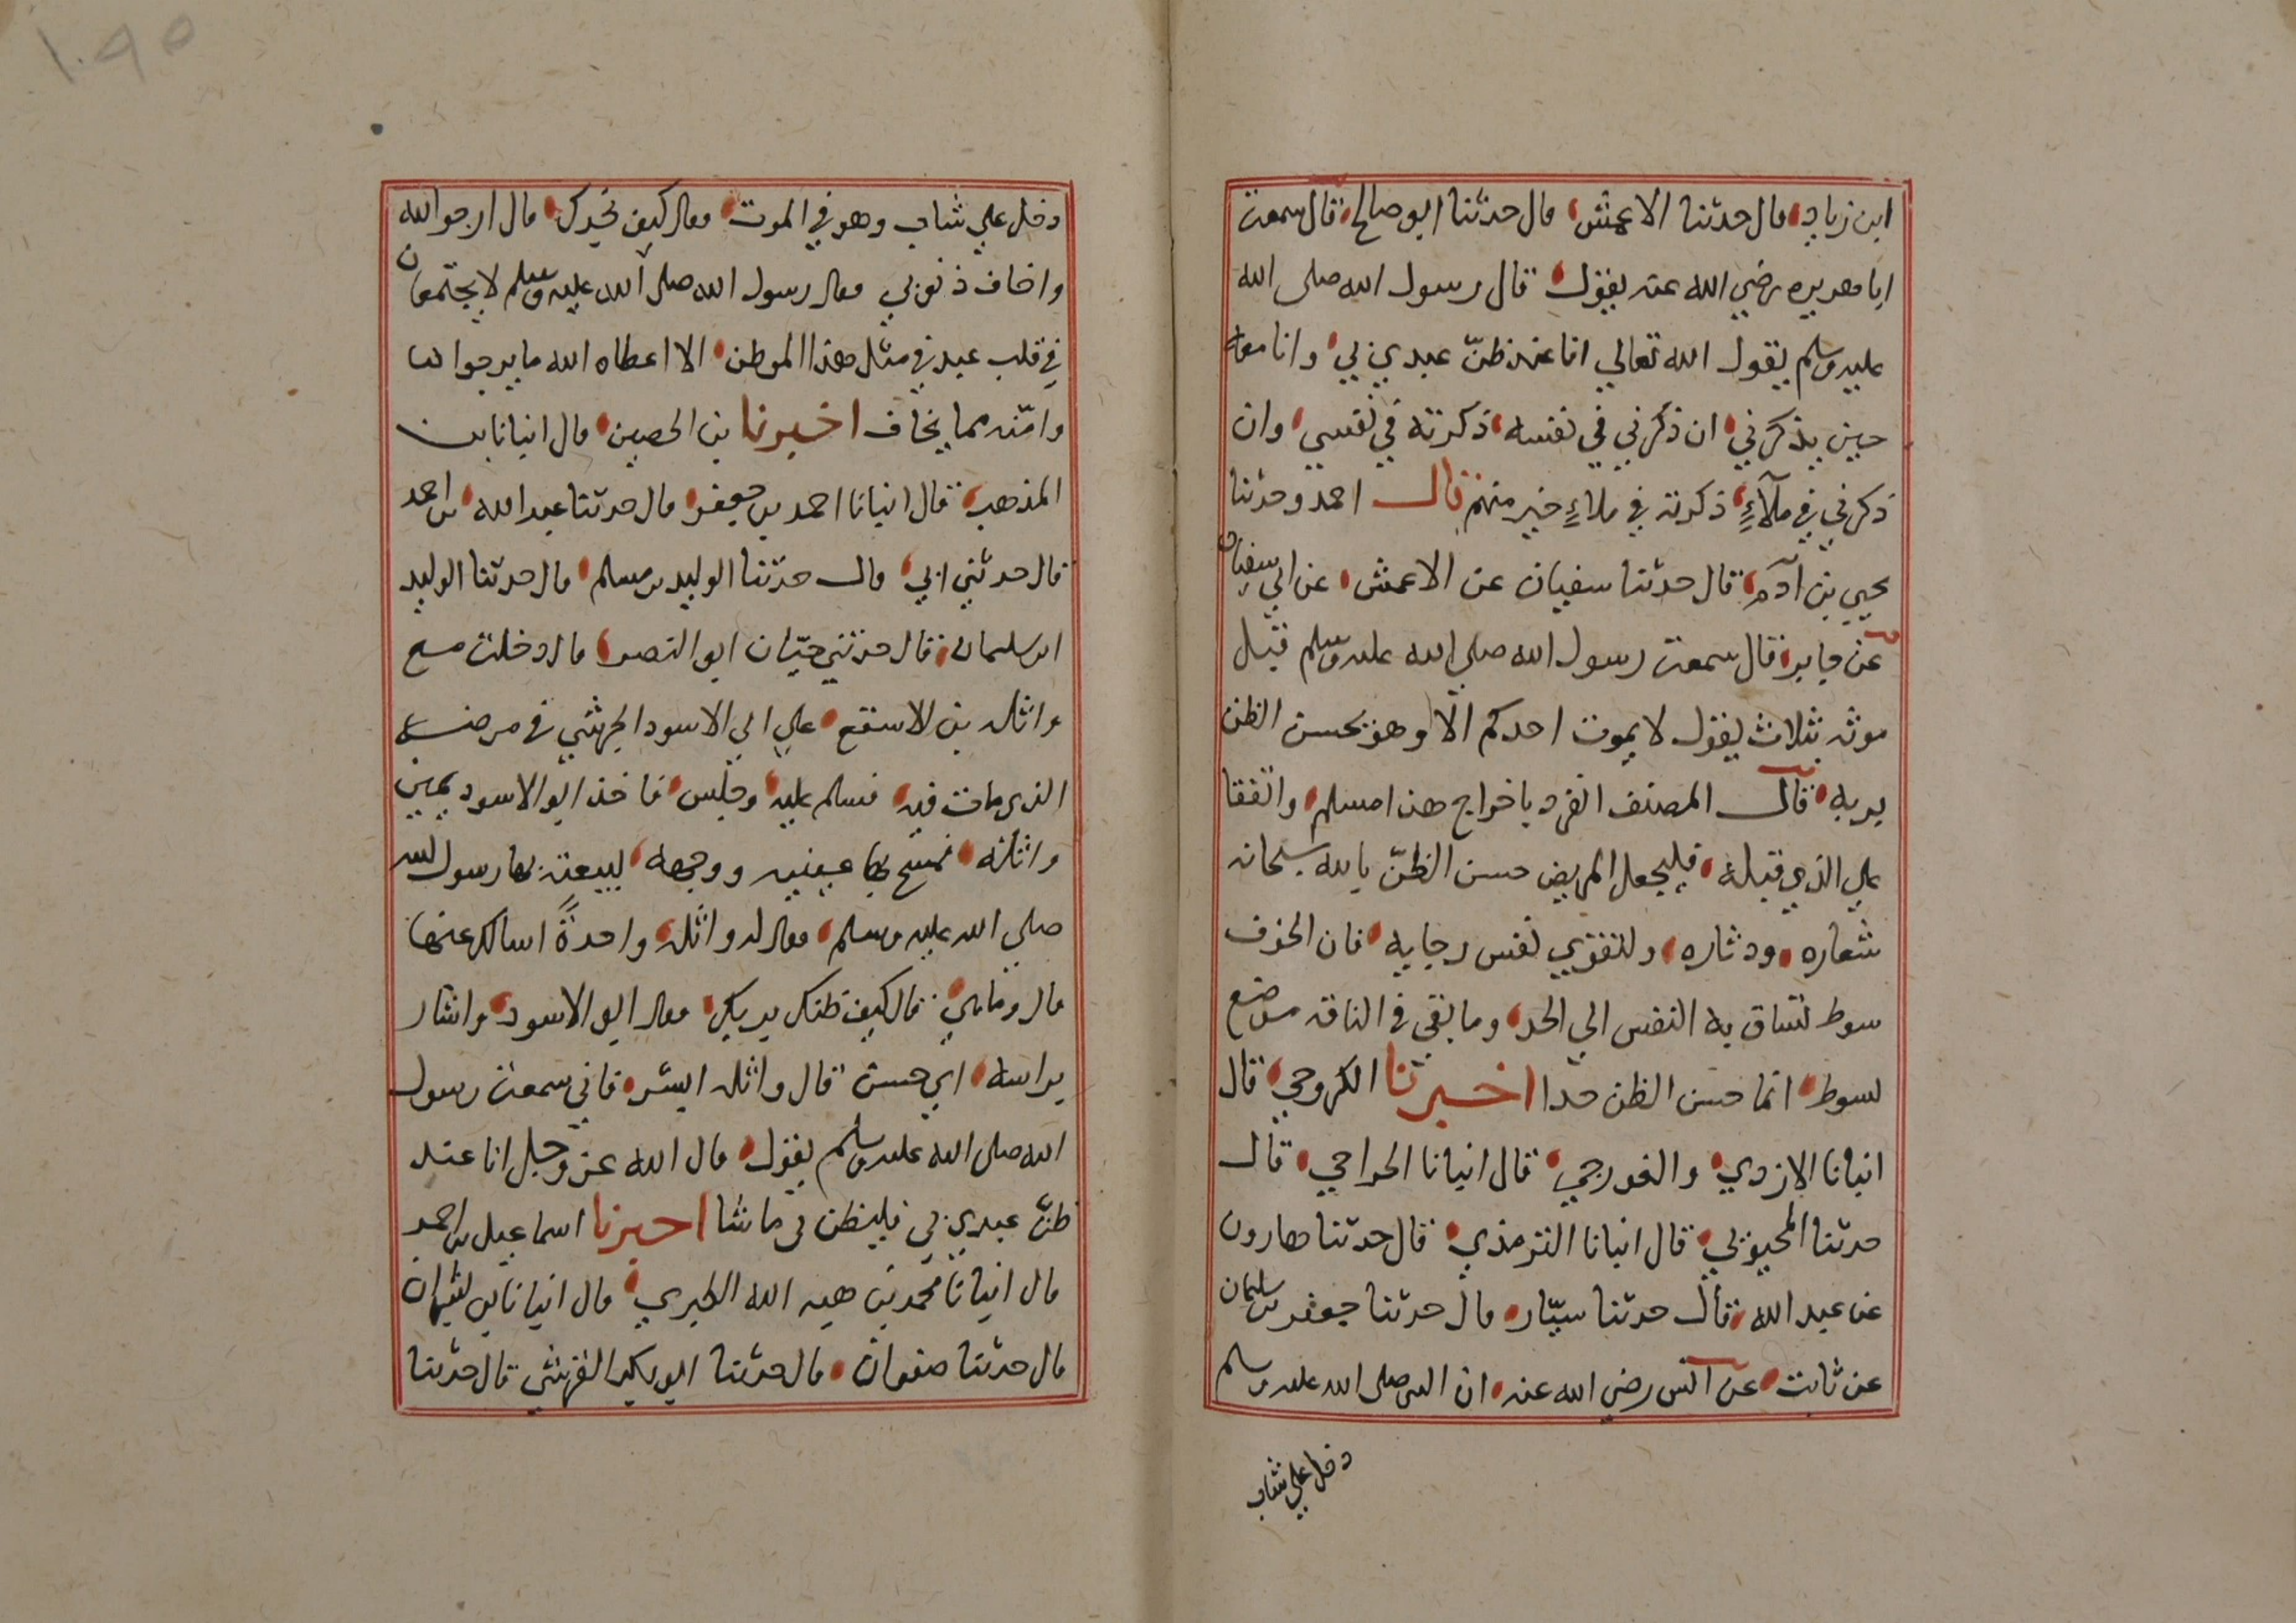 ابن زياد، قال حدثنا الاعمش، قال حدثنا ابو صالح، قال سمعت
ابا هريره رضي الله عنه يقول، قال رسول الله صلى الله
عليه وسلم يقول الله تعالي انا عند ظنّ عبدي بي، وانا معه
حين يذكرني، ان ذكرني في نفسه، ذكرته في نفسي، وان
ذكرني في ملآءٍ، ذكرته في ملاءٍ خير منهم قال احمد وحدثنا
يحيي بن آدم، قال حدثنا سفيان عن الاعمش، عن ابي سفيان
عن جابر، قال سمعت رسول الله صلي الله عليه وسلم قبل
موته بثلاث يقول لا يموت احدكم الّا وهو يحسن الظن
بربه، قال المصنف انفرد باخراج هذا مسلم، واتفقا
علي الذي قبله، فليجعل المريض حسن الظنّ بالله سبحانه
شعاره، ودثاره، ولتقوي نفس رجايه، فان الخوف
سوط تساق به النفس الي الجد، وما بقي في الناقه موضع
لسوط، انما حسن الظن حدا اخبرنا الكروجي، قال
انبانا الازدي، والغورجي، قال انبانا الجراحي، قال
حدثنا المحبوبي، قال انبانا الترمذي، قال حدثنا هارون
عن عبد الله، قال حدثنا سيّار، قال حدثنا جعفر بن سليمان
عن ثابت، عن انس رضي الله عنه، ان النبي صلى الله عليه وسلم
دخل علي شاب
١٠٩٥
دخل علي شاب وهو في الموت، فقال كيف تجدك، قال ارجو الله
واخاف ذنوبي فقال رسول الله صلى الله عليه وسلم لا يجتمعان
في قلب عبد في مثل هذا الموطن، الا اعطاه الله ما يرجوا
وامّنه مما يخاف اخبرنا بن الحصين، قال انبانا بن
المذهب، قال انبانا احمد بن جعفر، قال حدثنا عبد الله، بن احمد
قال حدثني ابي، قال حدّثنا الوليد بن مسلم، قال حدثنا الوليد
ابن سليمان، قال حدثني حيّان ابو النصر، قال دخلت مع
واثله بن الاسقع، علي ابي الاسود الجرشي في مرضه
الذي مات فيه، فسلم عليه، وجلس، فاخذ ابو الاسود يمين
واثلة، فمسح بها عينيه ووجهه، لبيعته بها رسول الله
صلي الله عليه وسلم، فقال له واثلة، واحدةً اسالك عنها
قال وما هي، قال كيف ظنك بربك، فقال ابو الاسود، واشار
براسه، اي حسن قال واثله ابشر، فاني سمعت رسول
الله صلى الله عليه وسلم يقول، قال الله عز وجل انا عند
ظنّ عبدي بي فليظن بي ما شا اخبرنا اسماعيل بن احمد
قال انبانا محمد بن هبه الله الطبري، قال انبانا بن بشران
قال حدثنا صفوان، قال حدثنا ابو بكر القرشي قال حدثنا